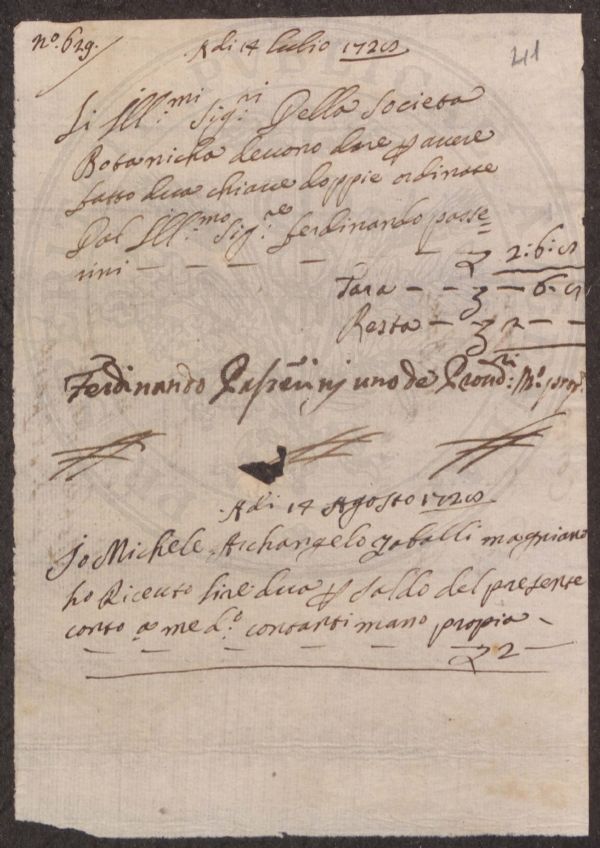 n.º 629.
Adi 14 Iulio 1728
411
Li Ill:mi Sig:ri Della Societa
Botanicha deuono dare p auere
fatto dua chiaue doppie ordinate
Dal Ill:mo Sig:re Ferdinando passe=
rini — — — — — — 2:6:8
Tara — — — 6:8
Resta — 2 — —
Ferdinando Passerinj uno de Proud:ri M:o prop:a
Adi 14 Agosto 1728
Io Michele Archangelo zaballi magniano
ho Riceuto lire dua p saldo del presente
conto a me d:o contanti mano propia —
— — — — — — 2 —